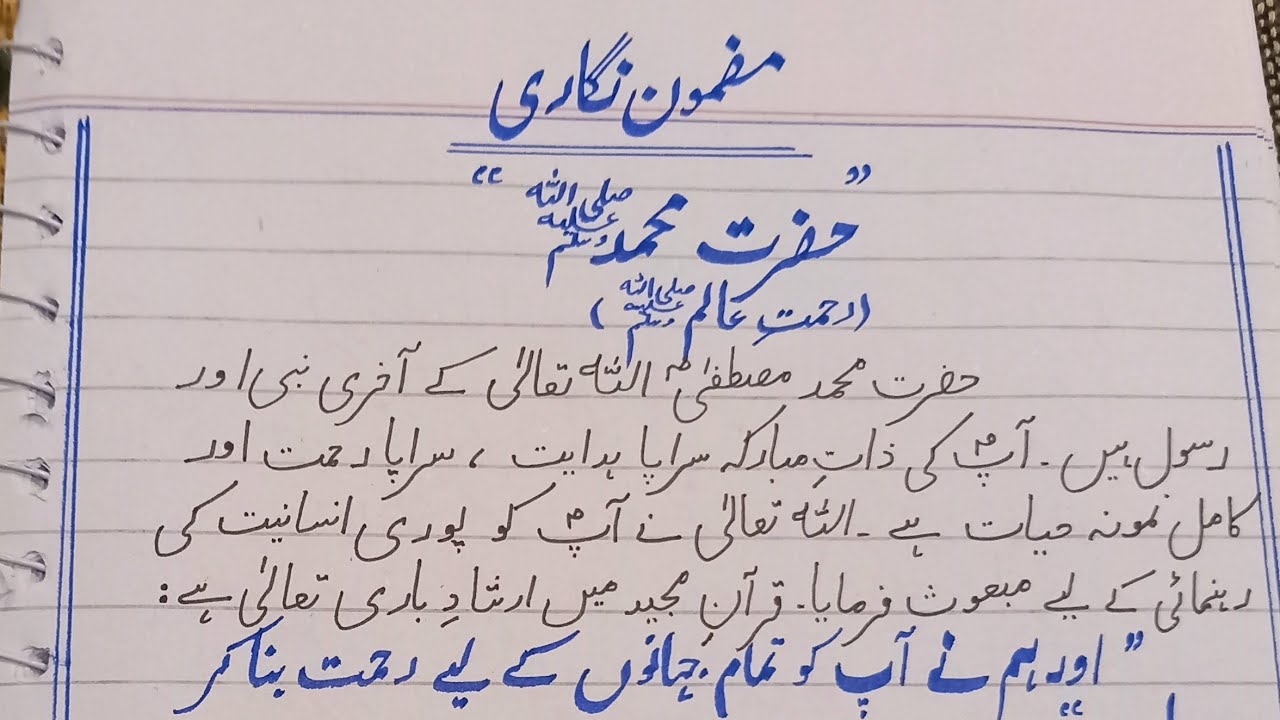 مضمون نگاری
”حضرت محمد صلی اللہ علیہ وسلم“
(رحمتِ عالم صلی اللہ علیہ وسلم)
حضرت محمد مصطفیٰؐ اللہ تعالیٰ کے آخری نبی اور
رسول ہیں۔ آپؐ کی ذاتِ مبارکہ سراپا ہدایت ، سراپا رحمت اور
کامل نمونہ حیات ہے ۔ اللہ تعالیٰ نے آپؐ کو پوری انسانیت کی
رہنمائی کے لیے مبعوث فرمایا۔ قرآنِ مجید میں ارشادِ باری تعالیٰ ہے:
”اور ہم نے آپ کو تمام جہانوں کے لیے رحمت بنا کر